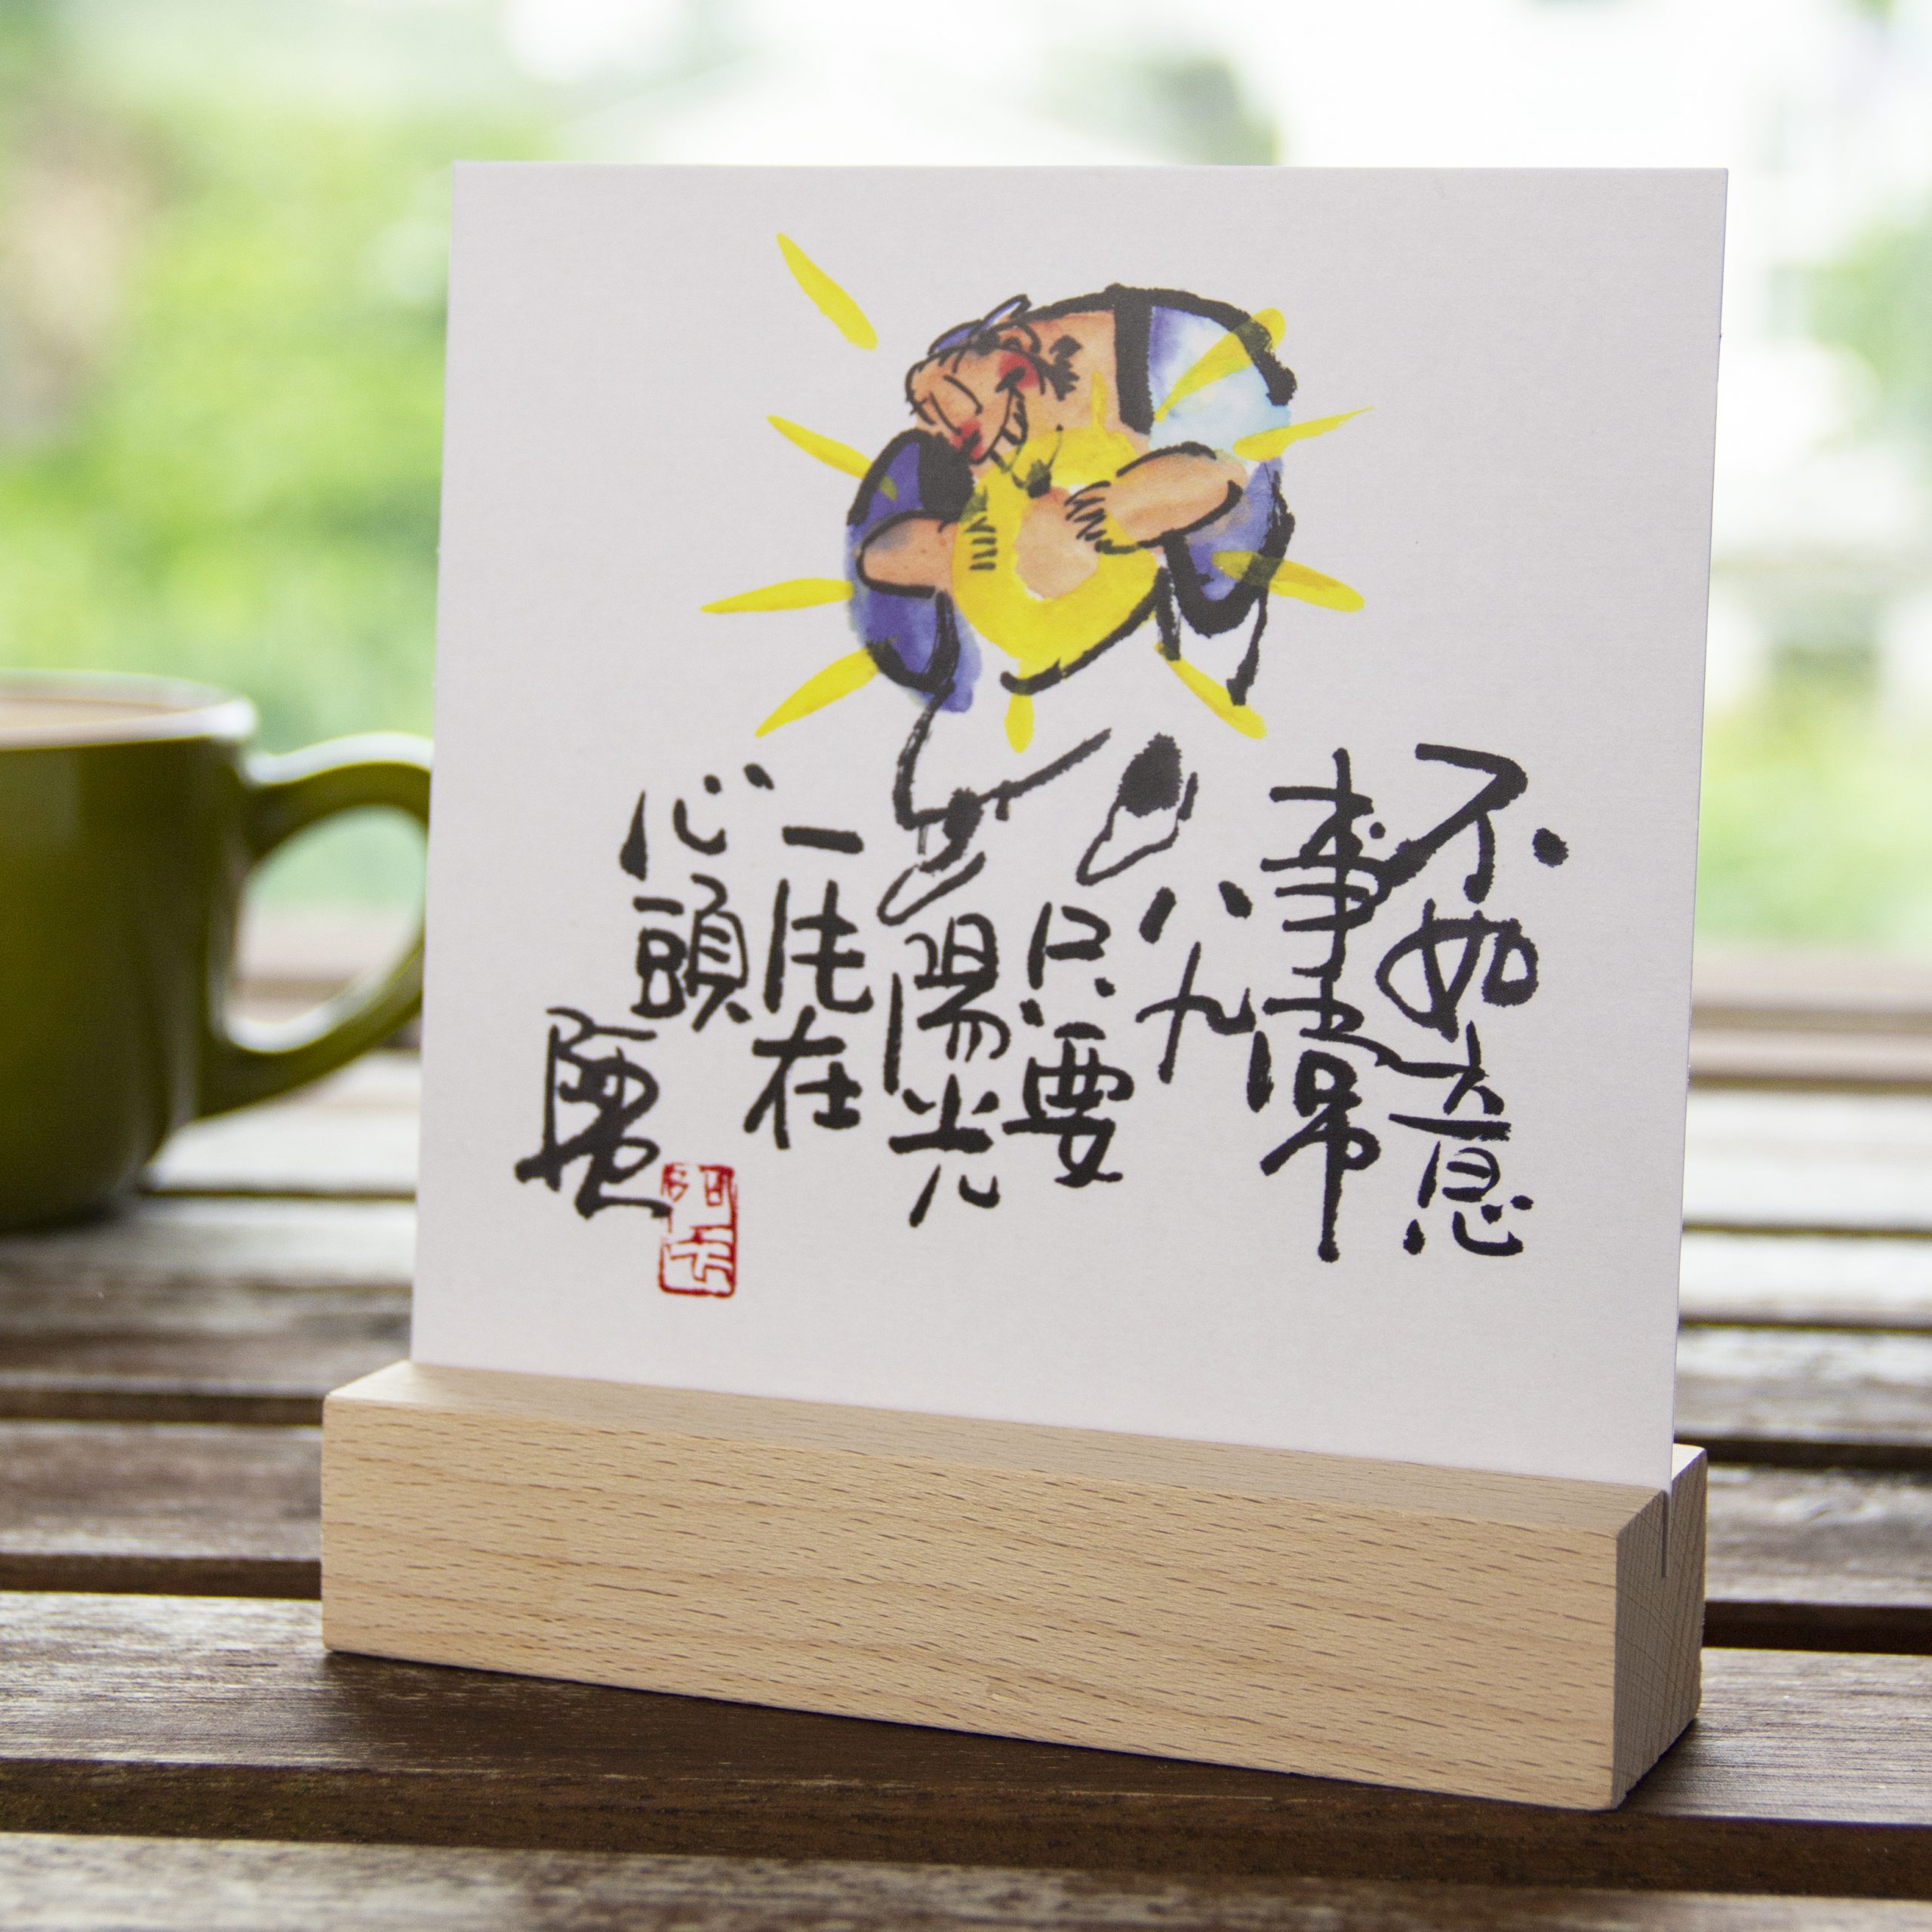 不如意
事常
八九
只要
陽光
一在
心頭